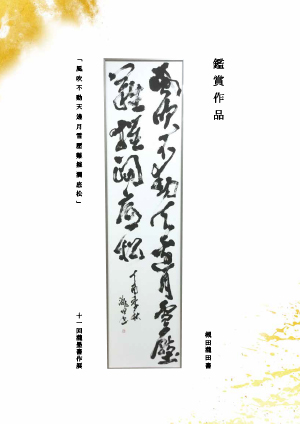 鑑賞作品
風吹不動天邊月雪壓
難摧澗底松
「風吹不動天邊月雪壓難摧澗底松」
十一回龍墨書作展